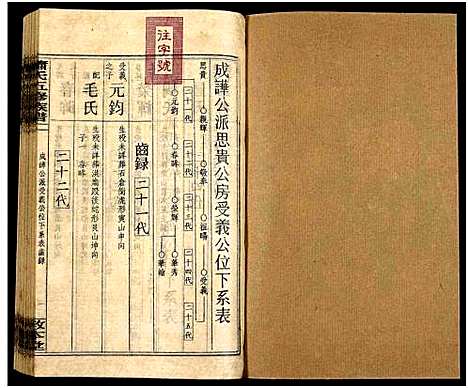 注字號
成譁公派思貴公房受義公位下系表
思貴
親輝
毅奉
祖暘
受義
二十一代
二十二代
二十三代
二十四代
二十五代
元鈞
春疇
榮輝
華秀
華繪
齒錄 二十一代
受義之子 元鈞
生歿未詳葬石倉衝虎形寅山申向
配 毛氏
生歿未詳葬洪廟殿後蛇形艮山坤向
子一 春疇
二十二代
成譁公派受義公位下系表齒錄